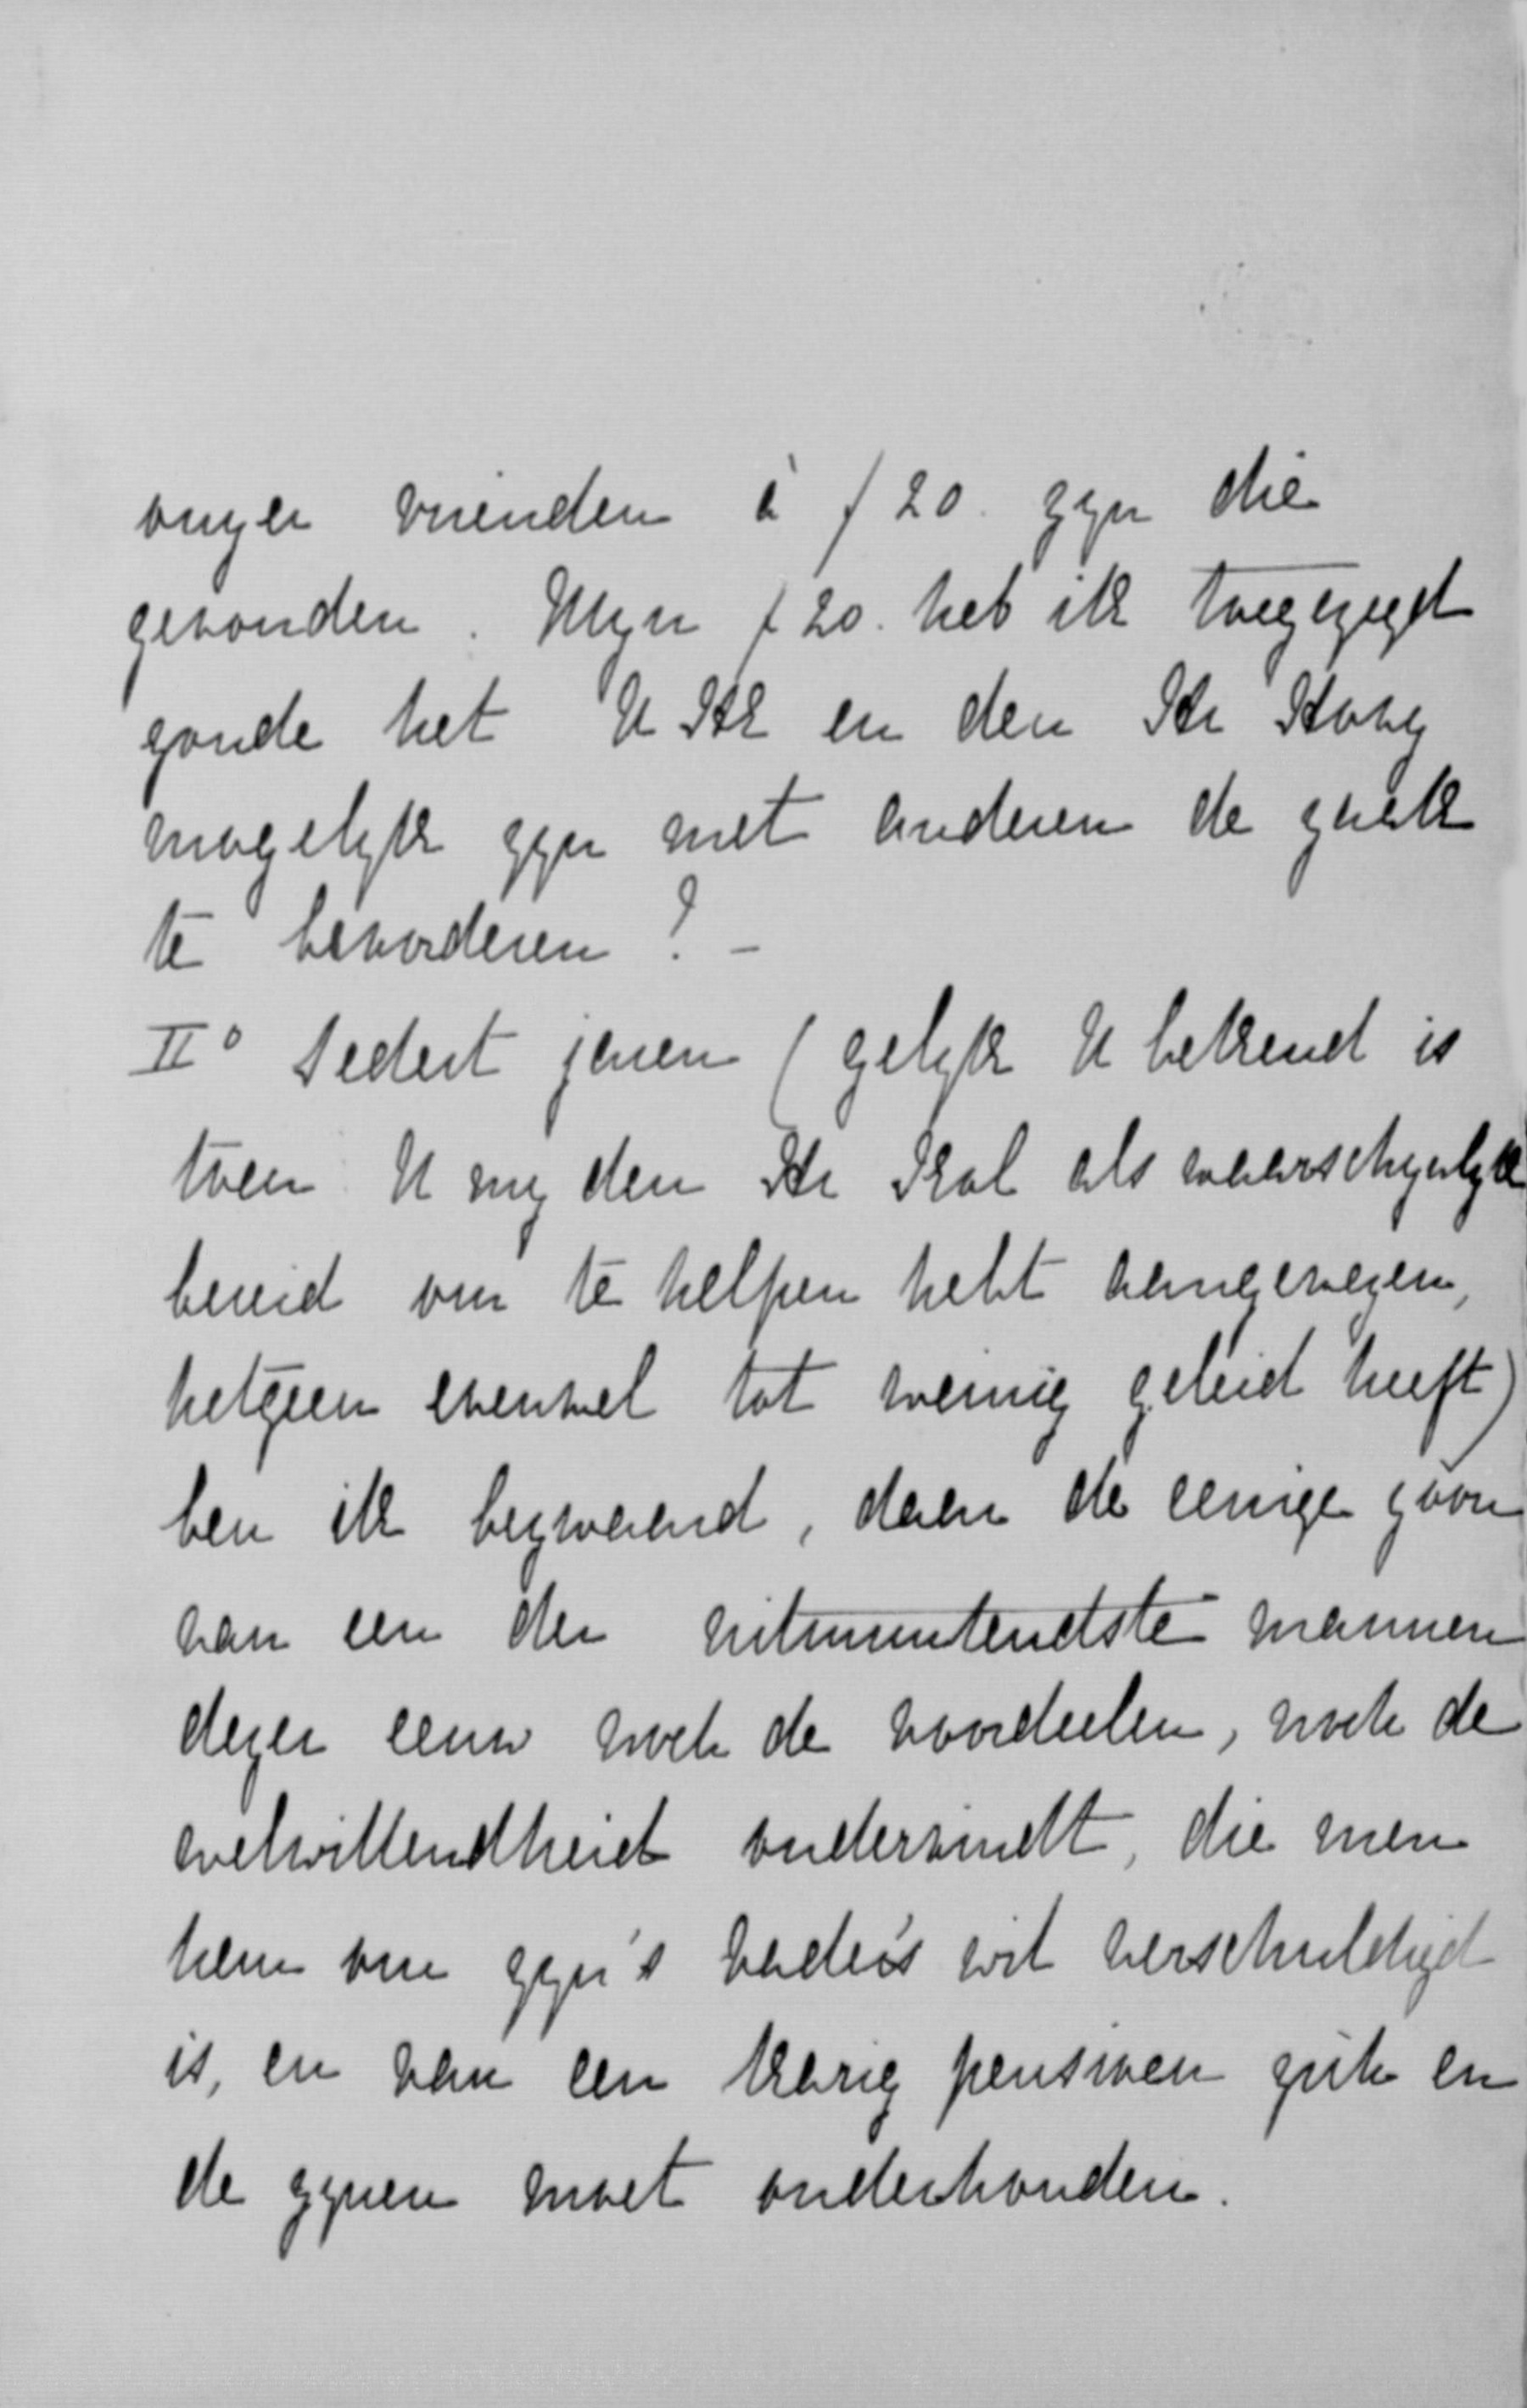 onzer vrienden à f 20. zyn die
gevonden. Myn f 20. heb ik toegezegd
zoude het U HE en den Hr Hovy
mogelyk zyn met anderen de zaak
te bevorderen? -
IIo Sedert jaren (gelyk U bekend is
toen U my den Hr Kol als waarschynlyk
bereid om te helpen hebt aangewezen,
hetgeen evenwel tot weinig geleid heeft)
ben ik bezwaard, daar de eenige zoon
van een der uitmuntendste mannen
dezer eeuw noch de voordeelen, noch de
welwillendheid ondervindt, die men
hem om zyn's vader's wil verschuldigd
is, en van een karig pensioen zich en
de zynen moet onderhouden.